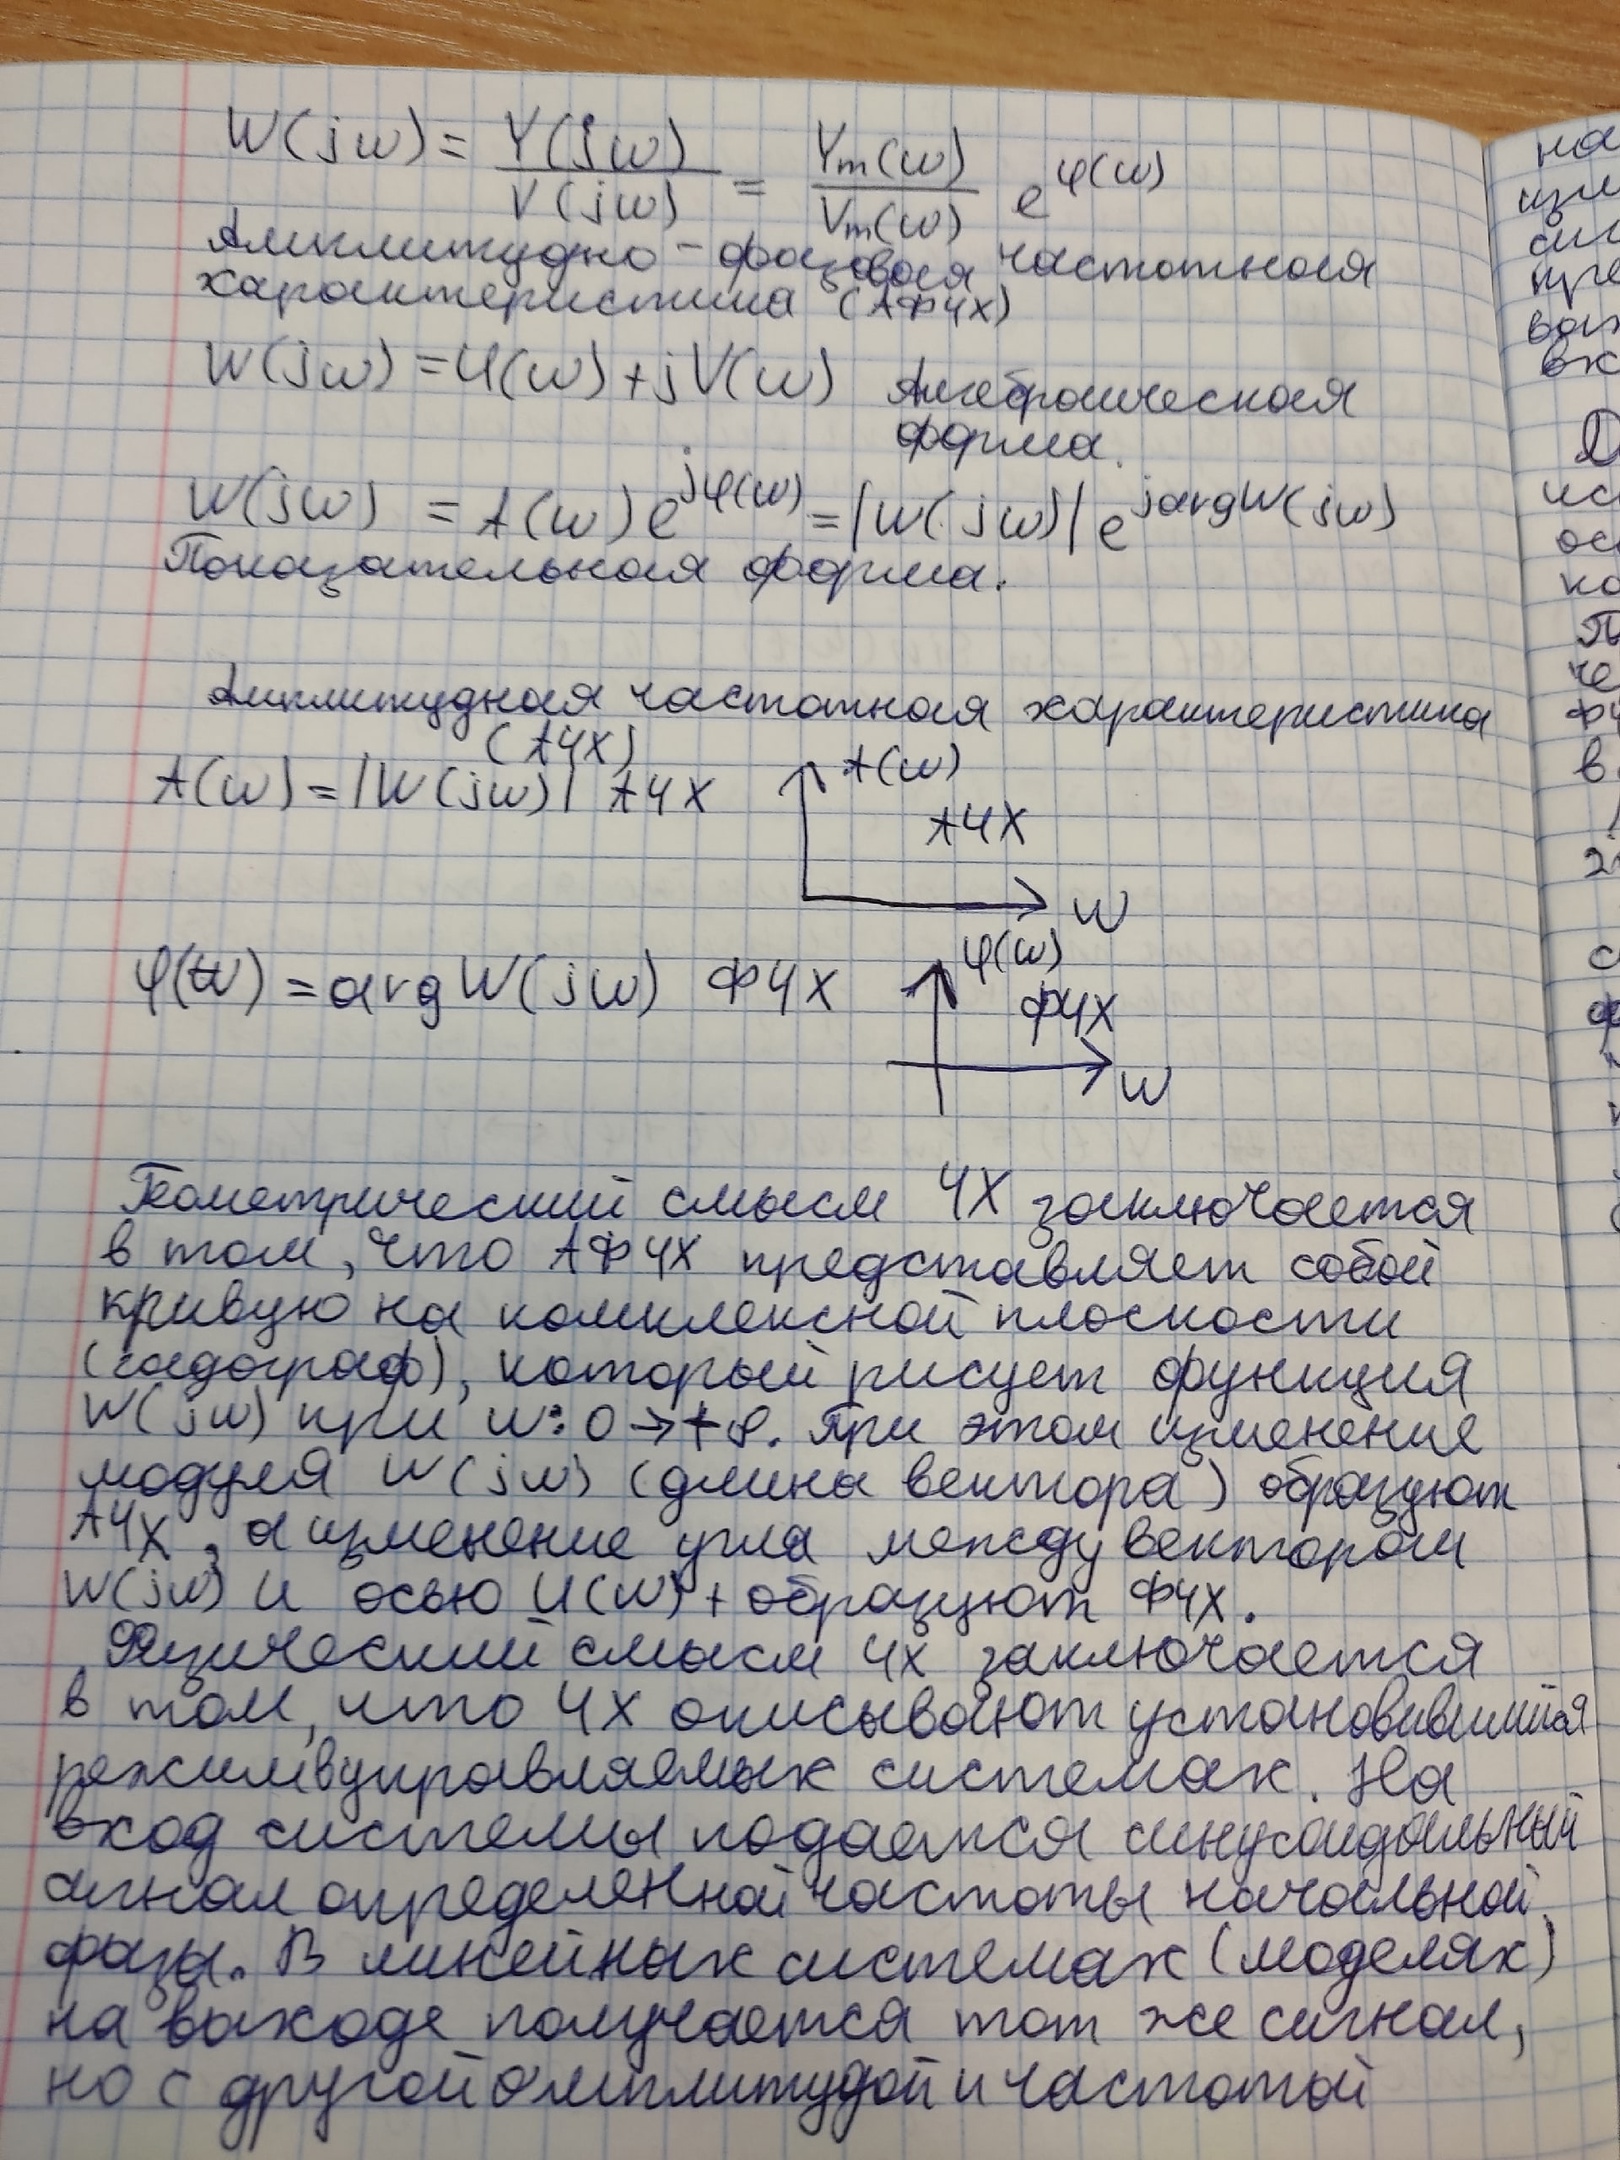 W(jω) = Y(jω)/V(jω) = Ym(ω)/Vm(ω) e^φ(ω)
Амплитудно-фазовая частотная
характеристика (АФЧХ)
W(jω) = U(ω) + jV(ω) Алгебраическая
форма.
W(jω) = A(ω)e^jφ(ω) = |W(jω)| e^jargW(jω)
Показательная форма.
Амплитудная частотная характеристика
(АЧХ)
A(ω) = |W(jω)| АЧХ
A(ω)
АЧХ
ω
φ(ω) = arg W(jω) ФЧХ
φ(ω)
ФЧХ
ω
Геометрический смысл ЧХ заключается
в том, что АФЧХ представляет собой
кривую на комплексной плоскости
(гадограф), который рисует функция
W(jω) при ω: 0 → +∞. При этом изменение
модуля W(jω) (длина вектора) образуют
АЧХ, а изменение угла между вектором
W(jω) и осью U(ω)+ образуют ФЧХ.
Физический смысл ЧХ заключается
в том, что ЧХ описывают установившийся
режим в управляемых системах. На
вход системы подается синусоидальный
сигнал определенной частоты начальной
фазы. В линейных системах (моделях)
на выходе получается тот же сигнал,
но с другой амплитудой и частотой
на
вк